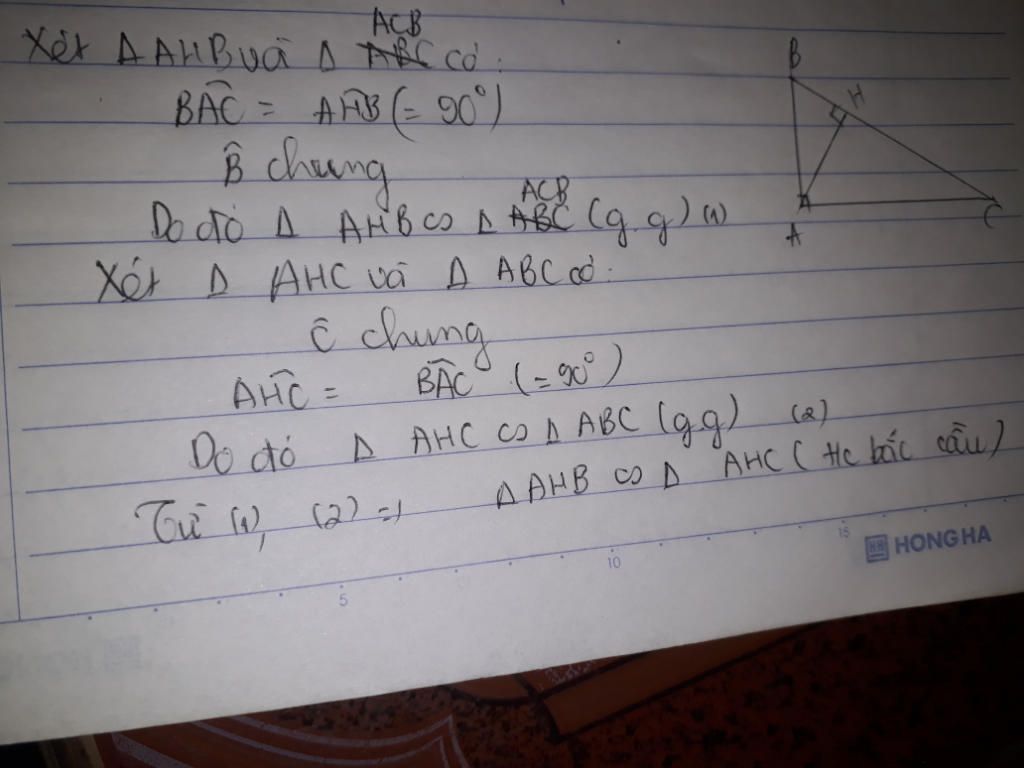 ACB
Xét Δ AHB và Δ ABC có:
BÂC = AĤB (= 90°)
B̂ chung
ACB
Do đó Δ AHB ∽ Δ ABC (g.g) (1)
Xét Δ AHC và Δ ABC có:
Ĉ chung
AĤC = BÂC (= 90°)
Do đó Δ AHC ∽ Δ ABC (g.g) (2)
Từ (1), (2) => Δ AHB ∽ Δ AHC (tc bắc cầu)
B
H
A
C
5
10
15
HONG HA